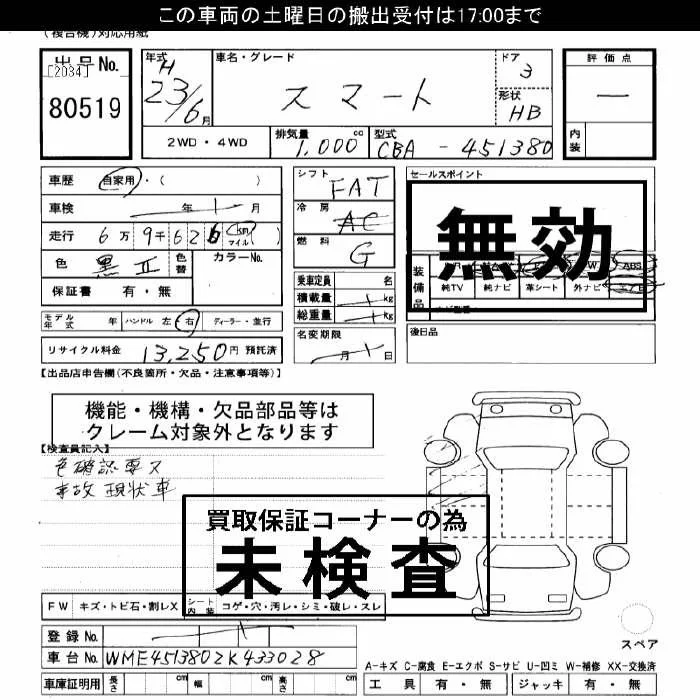 この車両の土曜日の搬出受付は17:00まで
(複合機)対応用紙
出品No.
[2034]
80519
年式
H
23/6月
車名・グレード
スマート
ドア
3
形状
HB
評価点
—
内装
2WD・4WD
排気量
1,000 cc
型式
CBA - 451380
車歴 自家用・( )
車検 年 月
走行 6万9千626 km マイル ( )
色 黒Ⅱ 色替 カラーNo.
保証書 有・無
モデル年式 年 ハンドル 左 右 ディーラー・並行
リサイクル料金 13,250円 預託済
シフト FAT
冷房 AC
燃料 G
乗車定員 名
積載量 kg
総重量 kg
名変期限
月 日
セールスポイント
無効
装備品
ABS
純TV 純ナビ 革シート 外ナビ エアB
後日品
【出品店申告欄(不良箇所・欠品・注意事項等)】
機能・機構・欠品部品等は
クレーム対象外となります
【検査員記入】
色確認要ス
事故現状車
買取保証コーナーの為
未検査
FW キズ・トビ石・割レX シート内装 コゲ・穴・汚レ・シミ・破レ・スレ
登録No.
車台No. WME4513802K433028
車庫証明用 長さ cm 幅 cm 高さ cm
スペア
A-キズ C-腐食 E-エクボ S-サビ U-凹ミ W-補修 XX-交換済
工具 有・無 ジャッキ 有・無